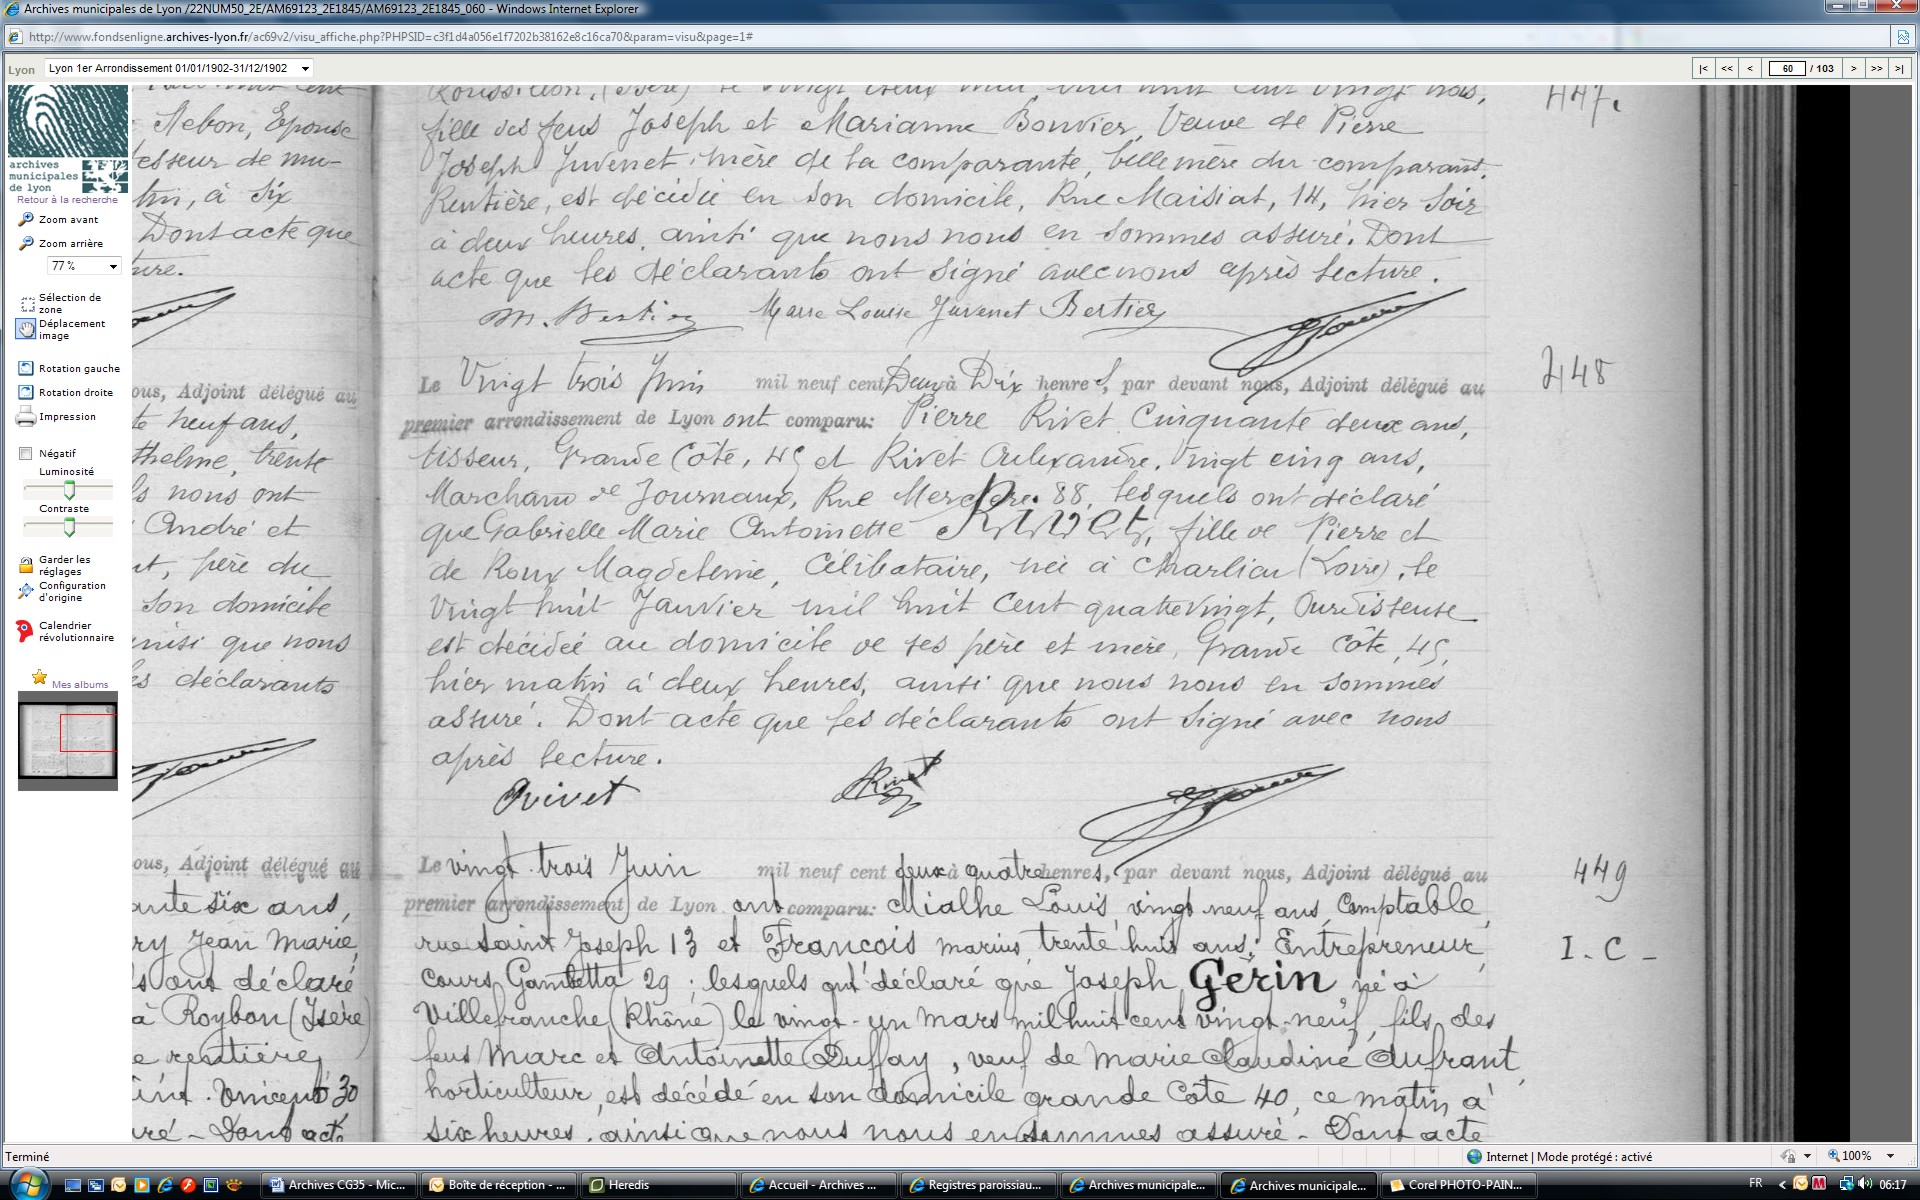 Archives municipales de Lyon /22NUM50_2E/AM69123_2E1845/AM69123_2E1845_060 - Windows Internet Explorer
http://www.fondsenligne.archives-lyon.fr/ac69v2/visu_affiche.php?PHPSID=c3f1d4a056e1f7202b38162e8c16ca70&param=visu&page=1#
Lyon
Lyon 1er Arrondissement 01/01/1902-31/12/1902
|< << < 60 / 103 > >> >|
archives
municipales
de lyon
Retour à la recherche
Zoom avant
Zoom arrière
77 %
Sélection de
zone
Déplacement
image
Rotation gauche
Rotation droite
Impression
Négatif
Luminosité
Contraste
Garder les
réglages
Configuration
d'origine
Calendrier
révolutionnaire
Mes albums
Nebon, Epouse
esseur de mu-
tin, à six
Dont acte que
ture.
ous, Adjoint délégué au
te neuf ans,
thelme, trente
ls nous ont
André et
nt, père du
son domicile
insi que nous
es déclarants
ous, Adjoint délégué au
ante six ans,
ry Jean Marie,
ls ont déclaré
à Roybon (Isère)
e rentière,
int. Vincent 30
ré - Dont acte
447.
Roussillon, (Isère) le vingt deux mai, mil huit cent vingt trois,
fille des feus Joseph et Marianne Bonvier, Veuve de Pierre
Joseph Juvenet, mère de la comparante, belle mère du comparant.
Rentière, est décédée en son domicile, Rue Maisiat, 14, hier soir
à deux heures, ainsi que nous nous en sommes assuré. Dont
acte que les déclarants ont signé avec nous après lecture.
M. Bertier Marie Louise Juvenet Bertier
448
Le Vingt trois Juin mil neuf cent Deux à Dix heures, par devant nous, Adjoint délégué au
premier arrondissement de Lyon ont comparu: Pierre Rivet Cinquante deux ans,
tisseur, Grande Côte, 45 et Rivet Alexandre, Vingt cinq ans,
Marchand de Journaux, Rue Mercière 88, lesquels ont déclaré
que Gabrielle Marie Antoinette Rivet, fille de Pierre et
de Roux Magdeleine, Célibataire, née à Charlieu (Loire), le
Vingt huit Janvier mil huit cent quatre vingt, Ourdisseuse
est décédée au domicile de ses père et mère, Grande Côte, 45,
hier matin à deux heures, ainsi que nous nous en sommes
assuré. Dont acte que les déclarants ont signé avec nous
après lecture.
Rivet Rivet
449
I. C -
Le vingt trois Juin mil neuf cent deux à quatre heures, par devant nous, Adjoint délégué au
premier arrondissement de Lyon ont comparu: Mialhe Louis, vingt neuf ans, Comptable,
rue Saint Joseph 13 et François marius, trente huit ans, Entrepreneur,
cours Gambetta 29 ; lesquels ont déclaré que Joseph Gérin né à
Villefranche (Rhône) le vingt-un mars mil huit cent vingt-neuf, fils des
feus Marc et Antoinette Duffay, veuf de Marie Claudine Aufrant,
horticulteur, est décédé en son domicile grande Côte 40, ce matin à
six heures, ainsi que nous nous en sommes assuré - Dont acte
Terminé
Internet | Mode protégé : activé
100%
Archives CG35 - Mic...
Boîte de réception - ...
Heredis
Accueil - Archives ...
Registres paroissiau...
Archives municipale...
Archives municipale...
Corel PHOTO-PAIN...
FR
06:17